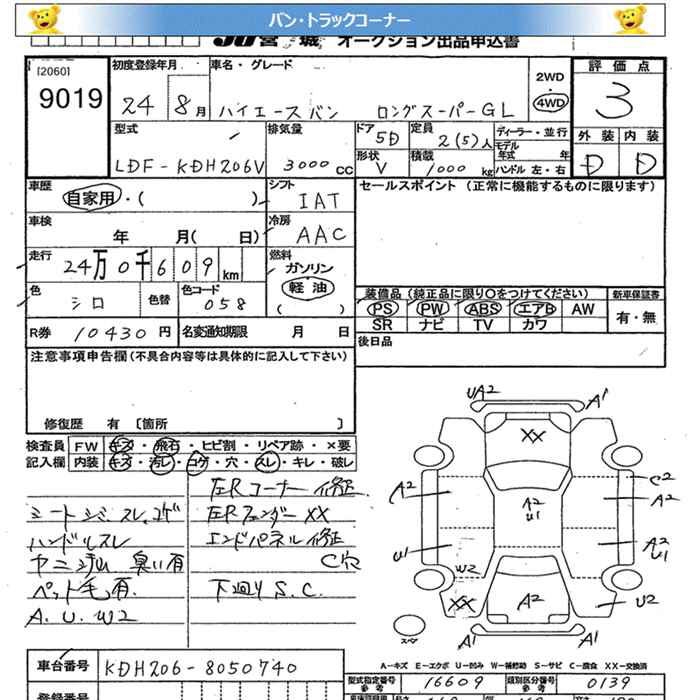 バン・トラックコーナー
JU宮城 オークション出品申込書
[2060]
9019
初度登録年月
24 8月
車名・グレード
ハイエースバン ロングスーパーGL
2WD
・
4WD
評価点
3
型式
LDF-KDH206V
排気量
3000cc
ドア
5D
定員
2(5)人
ディーラー・並行
モデル年式 年
外装 内装
D D
形状
V
積載
1000kg
ハンドル 左・右
車歴
自家用・( )
シフト
IAT
セールスポイント (正常に機能するものに限ります)
車検
年 月( 日)
冷房
AAC
走行
24万0千609km
燃料
ガソリン
軽油
( )
色
シロ
色替
色コード
058
装備品 (純正品に限り〇をつけてください)
PS PW ABS エアB AW
SR ナビ TV カワ
新車保証書
有・無
R券 10430円
名変通知期限 月 日
後日品
注意事項申告欄(不具合内容等は具体的に記入して下さい)
修復歴 有 〔箇所 〕
検査員記入欄
FW キズ・飛石・ヒビ割・リペア跡・×要
内装 キズ・汚レ・コゲ・穴・スレ・キレ・破レ
シートシミ、スレ、コゲ
ハンドルスレ
ヤニシデム 臭い有
ペット毛有
A.U.W2
左Rコーナー修正
左Rフェンダー XX
エンドパネル修正
C穴
下廻りS.C.
UA2
A1
XX
C2
A2
A2
A2
U1
U1
A2
U1
W2
XX
A2
U2
A1
A1
スペア
A-キズ E-エクボ U-凹み W-補修跡 S-サビ C-腐食 XX-交換済
車台番号
KDH206-8050740
型式指定番号
参考
16609
類別区分番号
参考
0139
登録番号